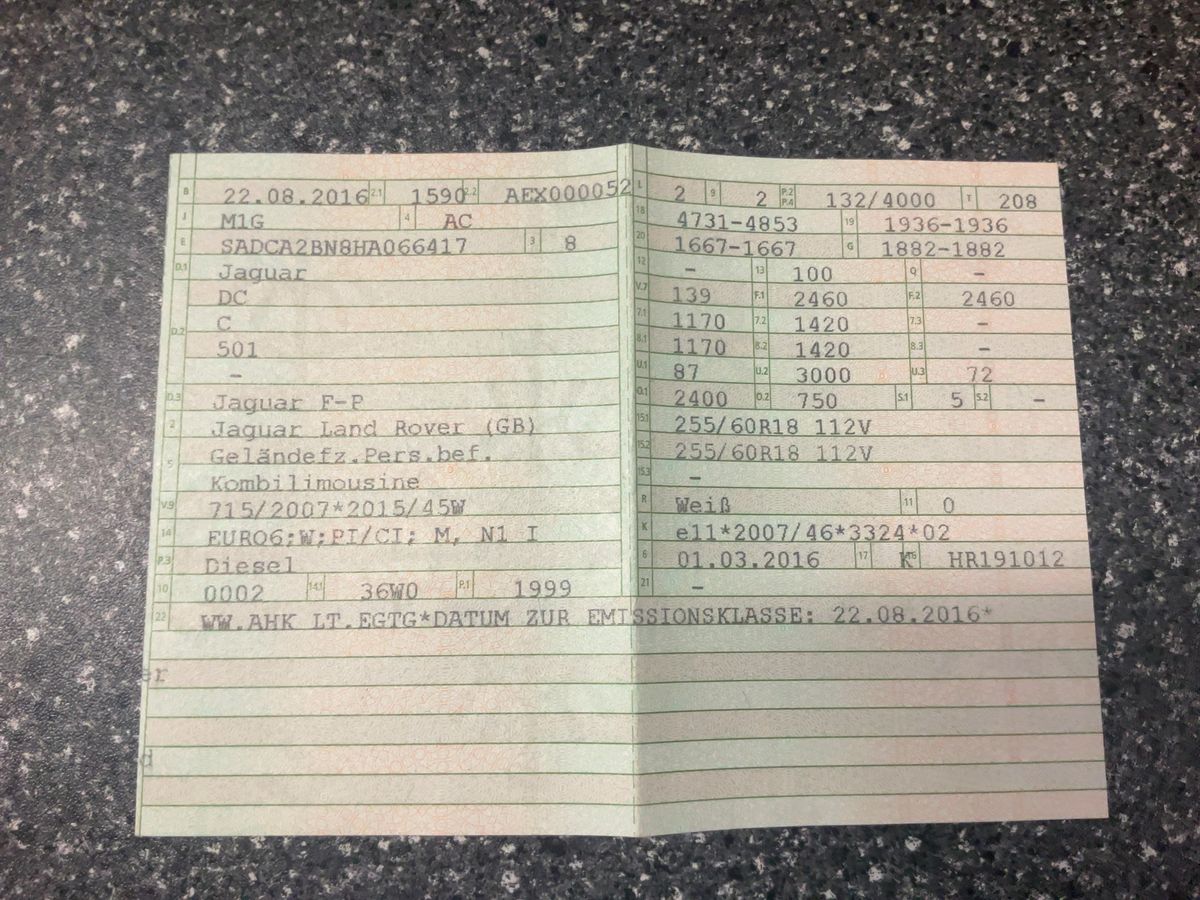 B 22.08.2016 2.1 1590 2.2 AEX000052 L 2 9 2 P.2 P.4 132/4000 T 208
J M1G 4 AC 18 4731-4853 19 1936-1936
E SADCA2BN8HA066417 3 8 20 1667-1667 G 1882-1882
D.1 Jaguar 12 - 13 100 Q -
DC V.7 139 F.1 2460 F.2 2460
D.2 C 7.1 1170 7.2 1420 7.3 -
501 8.1 1170 8.2 1420 8.3 -
- U.1 87 U.2 3000 U.3 72
D.3 Jaguar F-P O.1 2400 O.2 750 S.1 5 S.2 -
2 Jaguar Land Rover (GB) 15.1 255/60R18 112V
5 Geländefz.Pers.bef. 15.2 255/60R18 112V
Kombilimousine 15.3 -
V.9 715/2007*2015/45W R Weiß 11 0
14 EURO6;W;PI/CI; M, N1 I K e11*2007/46*3324*02
P.3 Diesel 6 01.03.2016 17 K 16 HR191012
10 0002 14.1 36W0 P.1 1999 21 -
22 WW.AHK LT.EGTG*DATUM ZUR EMISSIONSKLASSE: 22.08.2016*